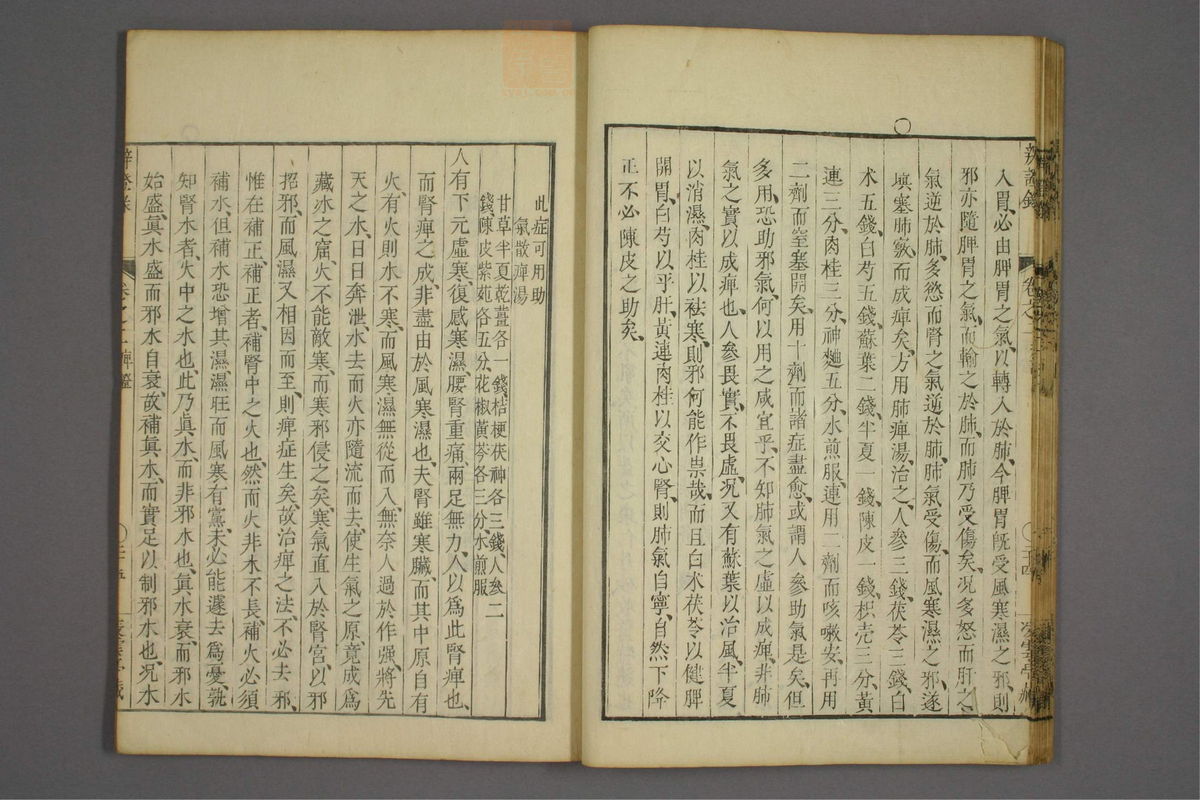 入胃必由脾胃之氣以轉入於肺今脾胃旣受風寒濕之邪則
邪亦隨脾胃之氣而輸之於肺而肺乃受傷矣况多怒而肝之
氣逆於肺多慾而腎之氣逆於肺肺氣受傷而風寒濕之邪遂
塡塞肺竅而成痺矣方用肺痺湯治之人參三錢茯苓三錢白
朮五錢白芍五錢蘇葉二錢半夏一錢陳皮一錢枳壳三分黃
連三分肉桂三分神麯五分水煎服連用二劑而咳嗽安再用
二劑而窒塞開矣用十劑而諸症盡愈或謂人參助氣是矣但
多用恐助邪氣何以用之咸宜乎不知肺氣之虛以成痺非肺
氣之實以成痺也人參畏實不畏虛况又有蘇葉以治風半夏
以消濕肉桂以祛寒則邪何能作祟哉而且白朮茯苓以健脾
開胃白芍以平肝黃連肉桂以交心腎則肺氣自寧自然下降
正不必陳皮之助矣
此症可用助
氣散痺湯
甘草半夏乾薑各一錢桔梗茯神各三錢人參二
錢陳皮紫菀各五分花椒黃芩各三分水煎服
人有下元虛寒復感寒濕腰腎重痛兩足無力人以爲此腎痺也
而腎痺之成非盡由於風寒濕也夫腎雖寒臟而其中原自有
火有火則水不寒而風寒濕無從而入無奈人過於作强將先
天之水日日奔泄水去而火亦隨流而去使生氣之原竟成爲
藏冰之窟火不能敵寒而寒邪侵之矣寒氣直入於腎宮以邪
招邪而風濕又相因而至則痺症生矣故治痺之法不必去邪
惟在補正補正者補腎中之火也然而火非水不長補火必須
補水但補水恐增其濕濕旺而風寒有黨未必能遽去爲憂孰
知腎水者火中之水也此乃眞水而非邪水也眞水衰而邪水
始盛眞水盛而邪水自衰故補眞水而實足以制邪水也况水